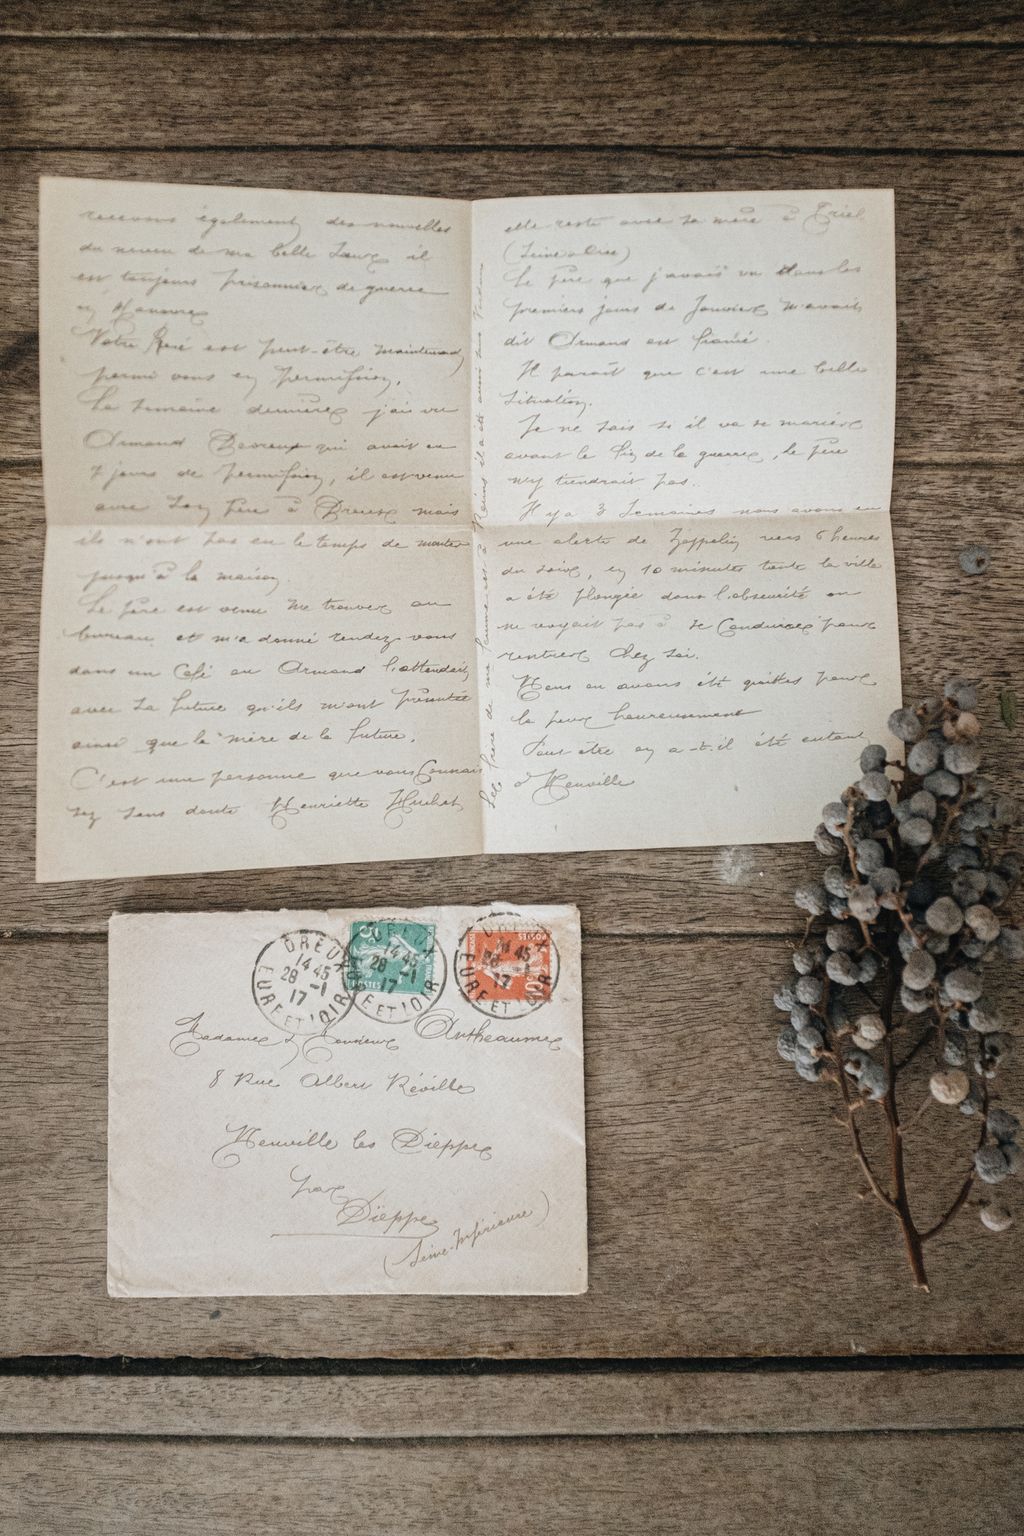 recevons également des nouvelles
du neveu de ma belle Sœur il
est toujours prisonnier de guerre
en Hanovre
Votre René est peut-être maintenant
parmi vous en permission.
La semaine dernière j'ai vu
Armand Devreux qui avait eu
7 jours de permission, il est venu
avec son père à Dreux mais
ils n'ont pas eu le temps de monter
jusqu'à la maison.
Le père est venu me trouver au
bureau et m'a donné rendez-vous
dans un Café ou Armand l'attendait
avec sa future qu'ils m'ont présenté
ainsi que la mère de la future.
C'est une personne que vous Connais
sez sans doute Henriette Huchet
elle reste avec sa mère à Triel
(Seine & Oise)
Le père que j'avais vu dans les
premiers jours de Janvier m'avait
dit Armand est fiancé.
Il parait que c'est une belle
situation.
Je ne sais si il va se marier
avant la fin de la guerre, le père
n'y tiendrait pas.
Il y a 3 Semaines nous avons eu
une alerte de Zeppelin vers 6 heures
du soir, en 10 minutes toute la ville
a été plongée dans l'obscurité on
ne voyait pas à se Conduire pour
rentrer chez soi.
Nous en avons été quittes pour
la peur heureusement
Peut être en a-t-il été autant
à Neuville
Le frère de ma femme est à Reims il a été aussi sous Verdun
DREUX
14 45
28 -1
17
EURE ET LOIR
POSTES
DREUX
14 45
28 -1
17
EURE ET LOIR
POSTES
DREUX
14 45
28 -1
17
EURE ET LOIR
Madame & Monsieur Antheaume
8 Rue Albert Réville
Neuville les Dieppe
par
Dieppe
(Seine-Inférieure)